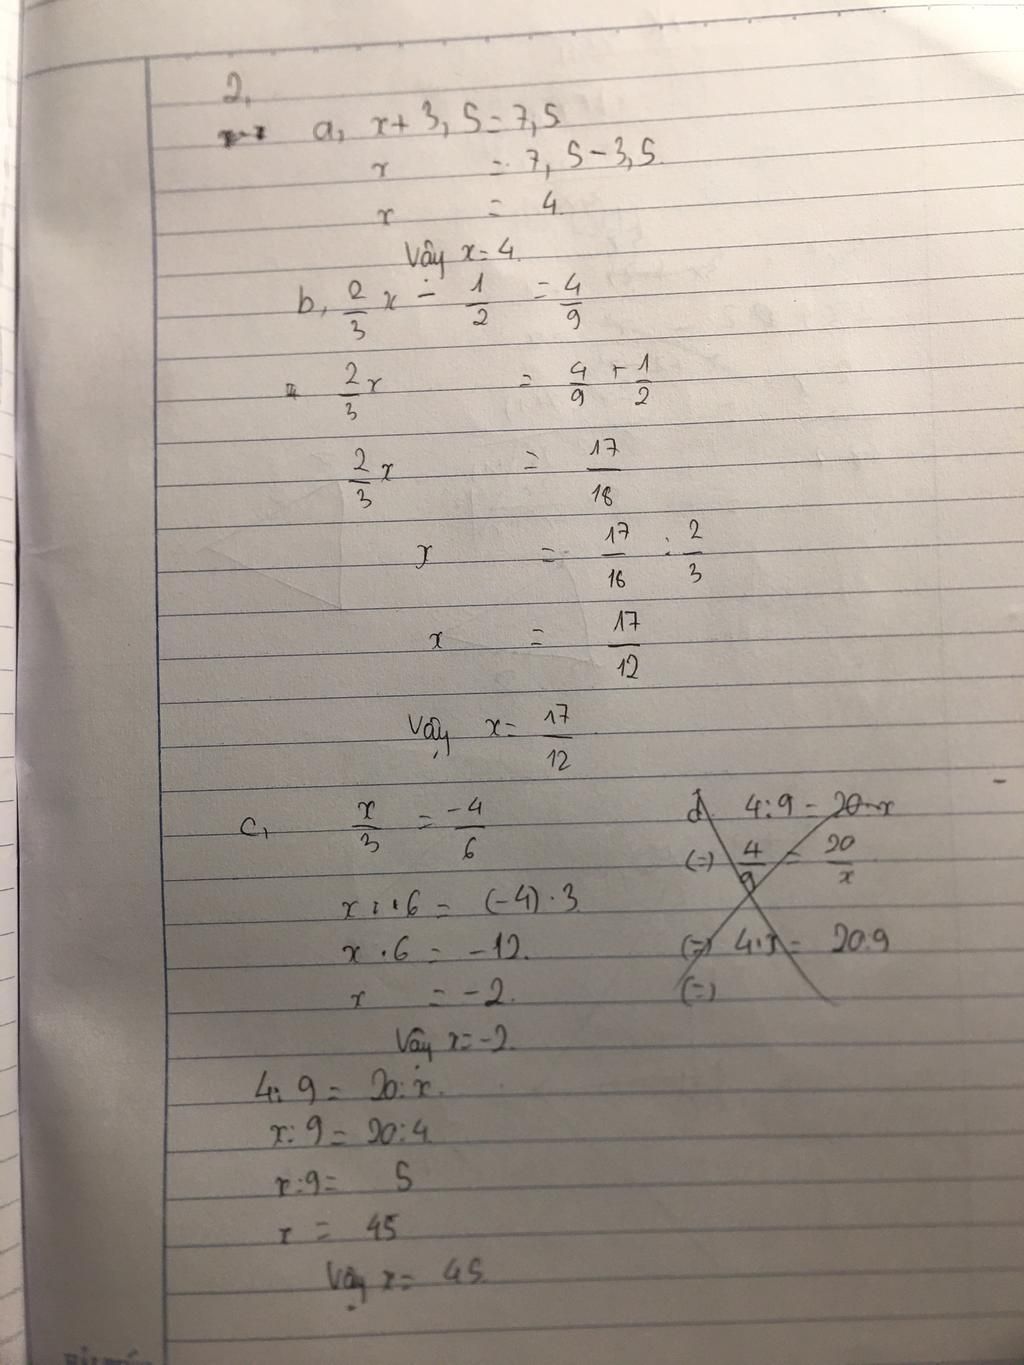 2,
a, x + 3,5 = 7,5
x = 7,5 - 3,5
x = 4.
Vậy x = 4.
b, 2/3 x - 1/2 = 4/9
2/3 x = 4/9 + 1/2
2/3 x = 17/18
x = 17/18 : 2/3
x = 17/12
Vậy x = 17/12
c, x/3 = -4/6
x . 6 = (-4) . 3
x . 6 = -12.
x = -2.
Vây x = -2.
d. 4 : 9 = 20 : x
(=) 4/9 = 20/x
(=) 4 . x = 20.9
(=)
4 : 9 = 20 : x.
x : 9 = 20 : 4
x : 9 = 5
x = 45
Vậy x = 45